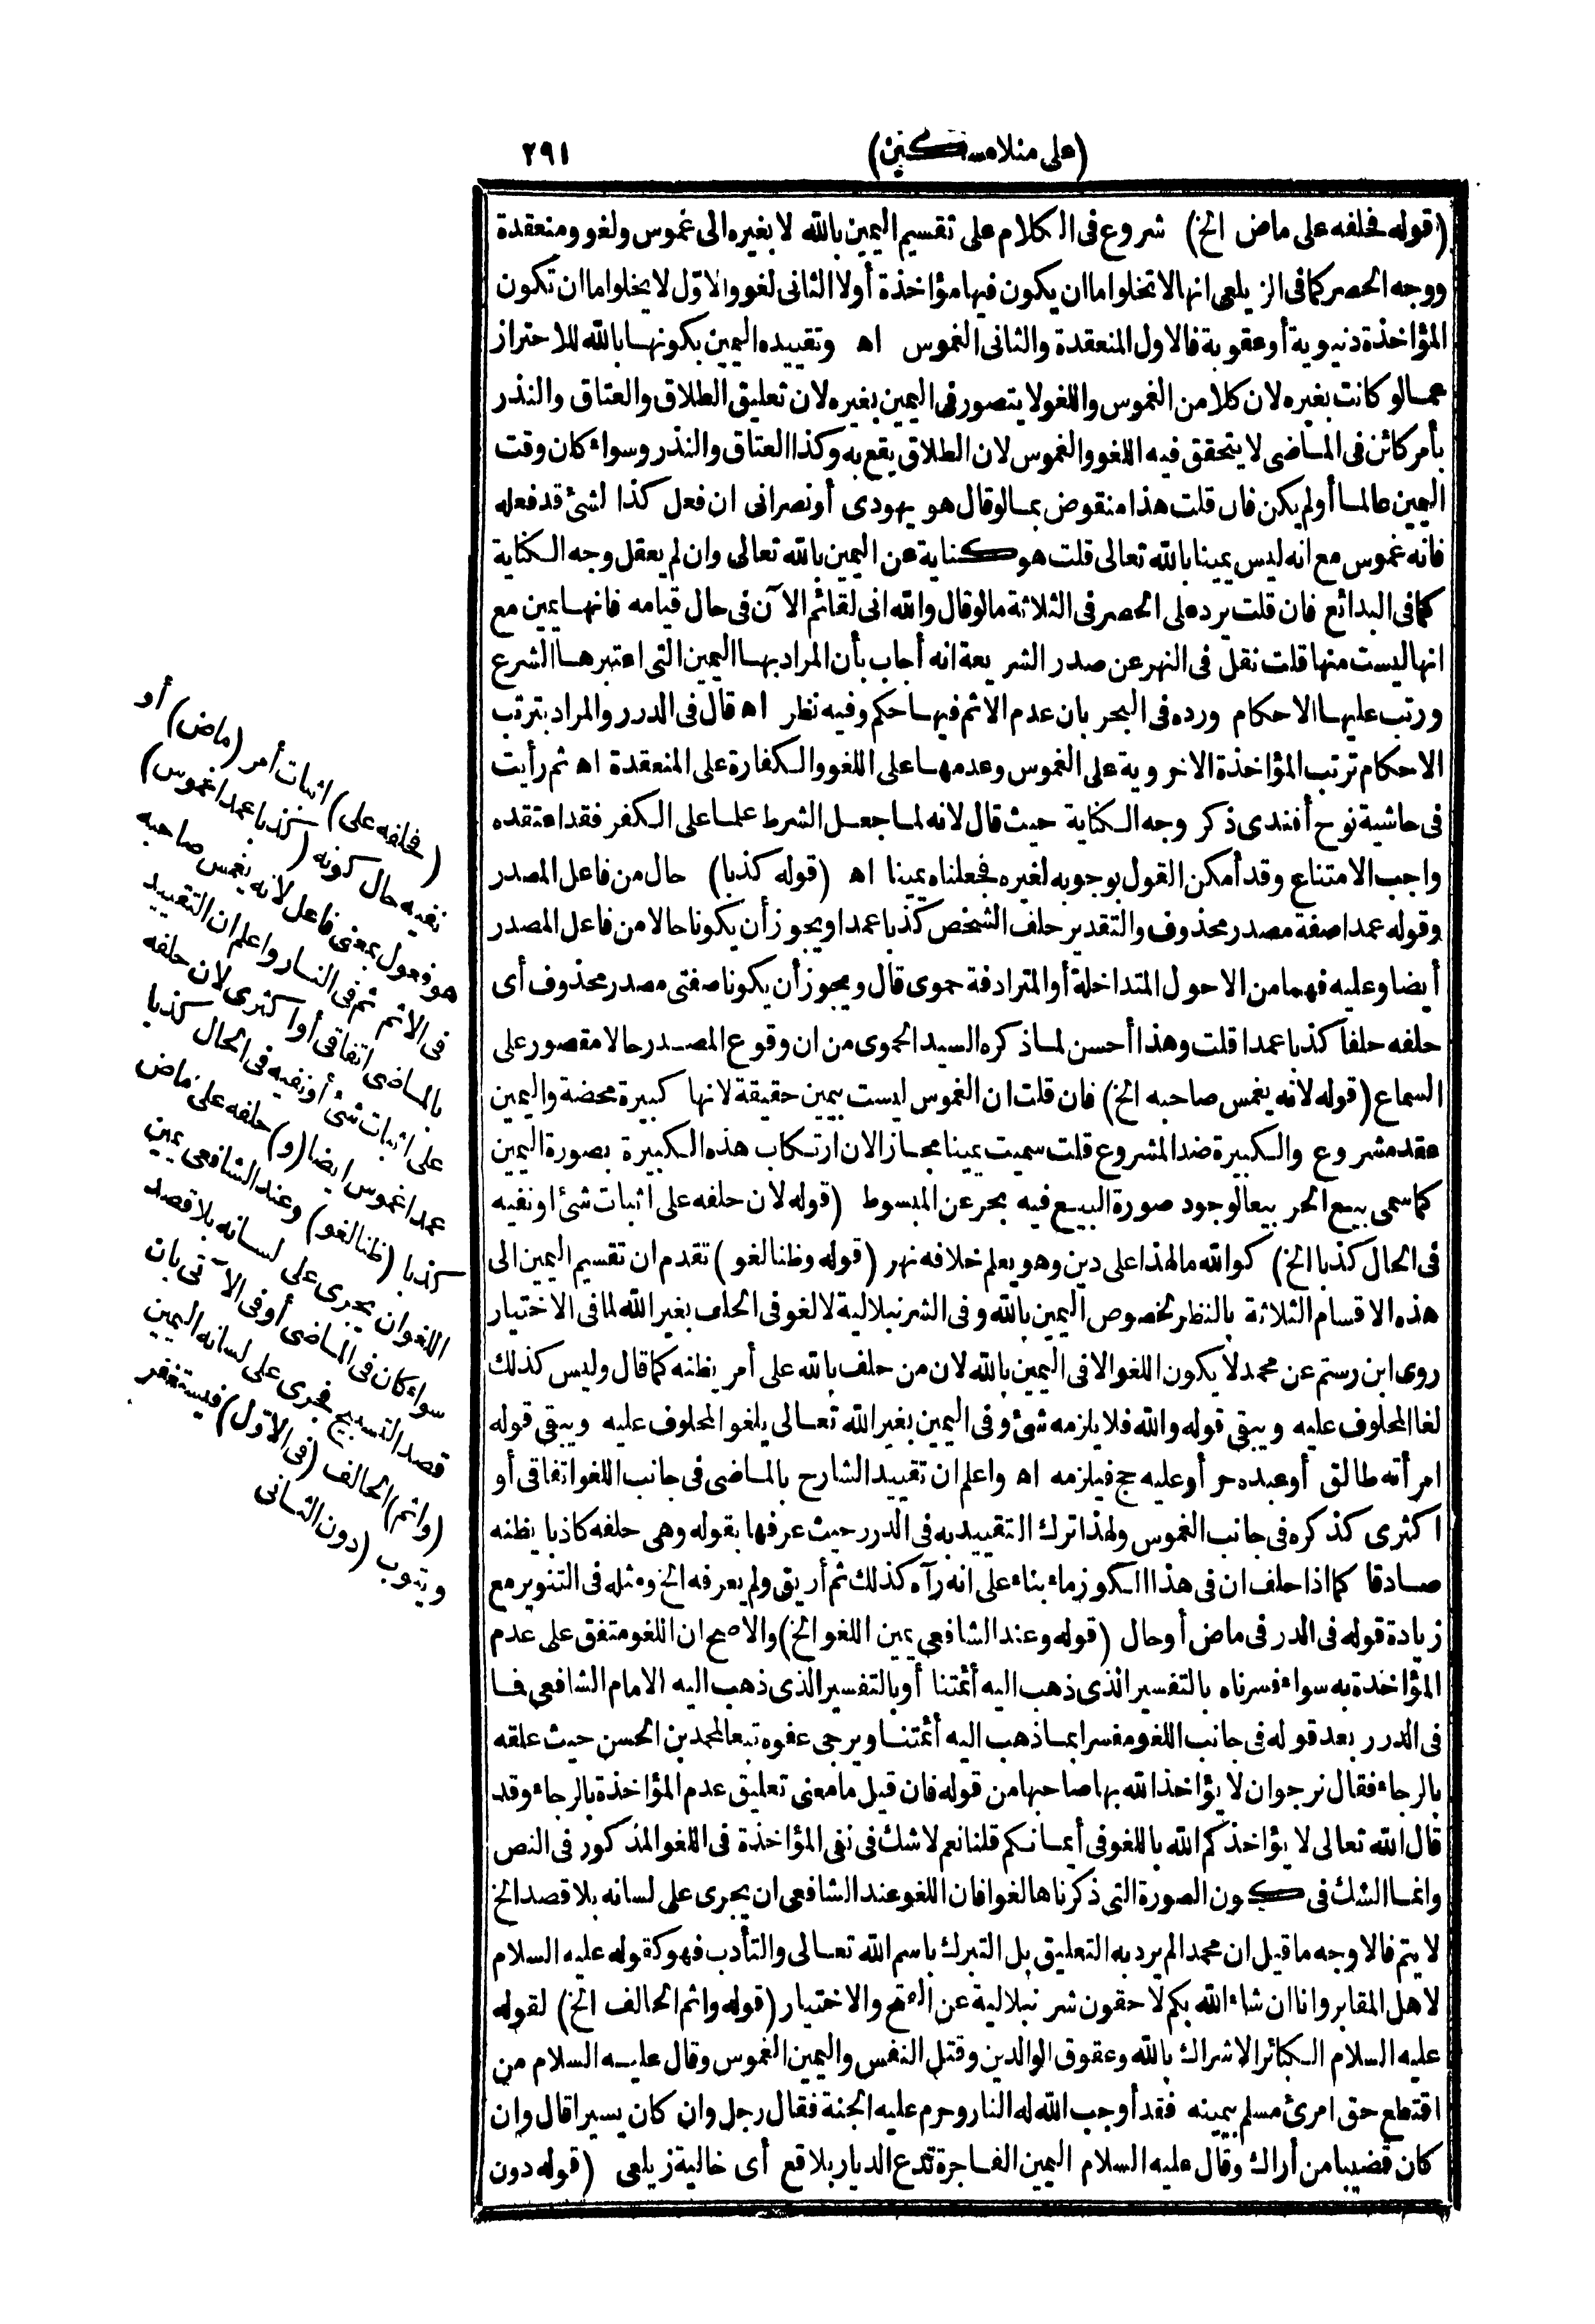 (على منلا مسكين) ٢٩١
(قوله فحلفه على ماض الخ) شروع فى الكلام على تقسيم اليمين بالله لا بغيره الى غموس ولغو ومنعقدة
ووجه الحصر كما فى الزيلعى انها لا تخلو اما ان يكون فيها مؤاخذة أو لا الثانى لغو والاوّل لا يخلو اما ان تكون
المؤاخذة دنيوية أو عقوبة فالاول المنعقدة والثانى الغموس اه وتقييده اليمين بكونها بالله للاحتراز
عما لو كانت بغيره لان كلا من الغموس واللغو لا يتصور فى اليمين بغيره لان تعليق الطلاق والعتاق والنذر
بأمر كائن فى الماضى لا يتحقق فيه اللغو والغموس لان الطلاق يقع به وكذا العتاق والنذر وسواء كان وقت
اليمين عالما أو لم يكن فان قلت هذا منقوض بما لو قال هو يهودى أو نصرانى ان فعل كذا لشئ قد فعله
فانه غموس مع انه ليس يمينا بالله تعالى قلت هو كناية عن اليمين بالله تعالى وان لم يعقل وجه الكناية
كما فى البدائع فان قلت يرد على الحصر فى الثلاثة ما لو قال والله انى لقائم الآن فى حال قيامه فانها يمين مع
انها ليست منها قلت نقل فى النهر عن صدر الشريعة انه أجاب بأن المراد بها اليمين التى اعتبرها الشرع
ورتب عليها الاحكام ورده فى البحر بان عدم الاثم فيها حكم وفيه نظر اه قال فى الدرر والمراد بترتب
الاحكام ترتب المؤاخذة الاخروية على الغموس وعدمها على اللغو والكفارة على المنعقدة اه ثم رأيت
فى حاشية نوح أفندى ذكر وجه الكناية حيث قال لانه لما جعل الشرط علما على الكفر فقد اعتقده
واجب الامتناع وقد أمكن القول بوجوبه لغيره فجعلناه يمينا اه (قوله كذبا) حال من فاعل المصدر
وقوله عمدا صفة مصدر محذوف والتقدير حلف الشخص كذبا عمدا ويجوز أن يكونا حالا من فاعل المصدر
أيضا وعليه فهما من الاحول المتداخلة أو المترادفة حموى قال ويجوز أن يكونا صفتى مصدر محذوف أى
حلفه حلفا كذبا عمدا قلت وهذا أحسن لما ذكره السيد الحموى من ان وقوع المصدر حالا مقصور على
السماع (قوله لانه يغمس صاحبه الخ) فان قلت ان الغموس ليست بيمين حقيقة لانها كبيرة محضة واليمين
عقد مشروع والكبيرة ضد المشروع قلت سميت يمينا مجازا لان ارتكاب هذه الكبيرة بصورة اليمين
كما سمى بيع الحر بيعا لوجود صورة البيع فيه بحر عن المبسوط (قوله لان حلفه على اثبات شئ او نفيه
فى الحال كذبا الخ) كوالله ما لهذا على دين وهو يعلم خلافه نهر (قوله وظنا لغو) تقدم ان تقسيم اليمين الى
هذه الاقسام الثلاثة بالنظر لخصوص اليمين بالله وفى الشرنبلالية لا لغو فى الحلف بغير الله لما فى الاختيار
روى ابن رستم عن محمد لا يكون اللغو الا فى اليمين بالله لان من حلف بالله على أمر يظنه كما قال وليس كذلك
لغا المحلوف عليه ويبقى قوله والله فلا يلزمه شئ وفى اليمين بغير الله تعالى يلغو المحلوف عليه ويبقى قوله
امرأته طالق أو عبده حر أو عليه حج فيلزمه اه واعلم ان تقييد الشارح بالماضى فى جانب اللغو اتفاقى أو
اكثرى كذكره فى جانب الغموس ولهذا ترك التقييد به فى الدرر حيث عرفها بقوله وهى حلفه كاذبا يظنه
صادقا كما اذا حلف ان فى هذا الكوز ماء بناء على انه رآه كذلك ثم أريق ولم يعرفه الخ ومثله فى التنوير مع
زيادة قوله فى الدر فى ماض أو حال (قوله وعند الشافعى يمين اللغو الخ) والاصح ان اللغو متفق على عدم
المؤاخذة به سواء فسرناه بالتفسير الذى ذهب اليه أئمتنا أو بالتفسير الذى ذهب اليه الامام الشافعى فما
فى الدرر بعد قوله فى جانب اللغو مفسرا بما ذهب اليه أئمتنا ويرجى عفوه تبعا لمحمد بن الحسن حيث علقه
بالرجاء فقال نرجو ان لا يؤاخذ الله بها صاحبها من قوله فان قيل ما معنى تعليق عدم المؤاخذة بالرجاء وقد
قال الله تعالى لا يؤاخذكم الله باللغو فى أيمانكم قلنا نعم لا شك فى نفى المؤاخذة فى اللغو المذكور فى النص
وانما الشك فى كون الصورة التى ذكرناها لغوا فان اللغو عند الشافعى ان يجرى على لسانه بلا قصد الخ
لا يتم فالاوجه ما قيل ان محمدا لم يرد به التعليق بل التبرك باسم الله تعالى والتأدب فهو كقوله عليه السلام
لاهل المقابر وانا ان شاء الله بكم لاحقون شرنبلالية عن الفتح والاختيار (قوله واثم الحالف الخ) لقوله
عليه السلام الكبائر الاشراك بالله وعقوق الوالدين وقتل النفس واليمين الغموس وقال عليه السلام من
اقتطع حق امرئ مسلم بيمينه فقد أوجب الله له النار وحرم عليه الجنة فقال رجل وان كان يسيرا قال وان
كان قضيبا من أراك وقال عليه السلام اليمين الفاجرة تدع الديار بلاقع أى خالية زيلعى (قوله دون
(فحلفه على) اثبات أمر (ماض) أو
نفيه حال كونه (كذبا عمدا غموس)
هو فعول بمعنى فاعل لانه يغمس صاحبه
فى الاثم ثم فى النار واعلم ان التقييد
بالماضى اتفاقى أو اكثرى لان حلفه
على اثبات شئ أو نفيه فى الحال كذبا
عمدا غموس ايضا (و) حلفه على ماض
كذبا (ظنا لغو) وعند الشافعى يمين
اللغو ان يجرى على لسانه بلا قصد
سواء كان فى الماضى أو فى الآتى بان
قصد التسبيح فجرى على لسانه اليمين
(واثم) الحالف (فى الاوّل) فيستغفر
ويتوب (دون الثانى